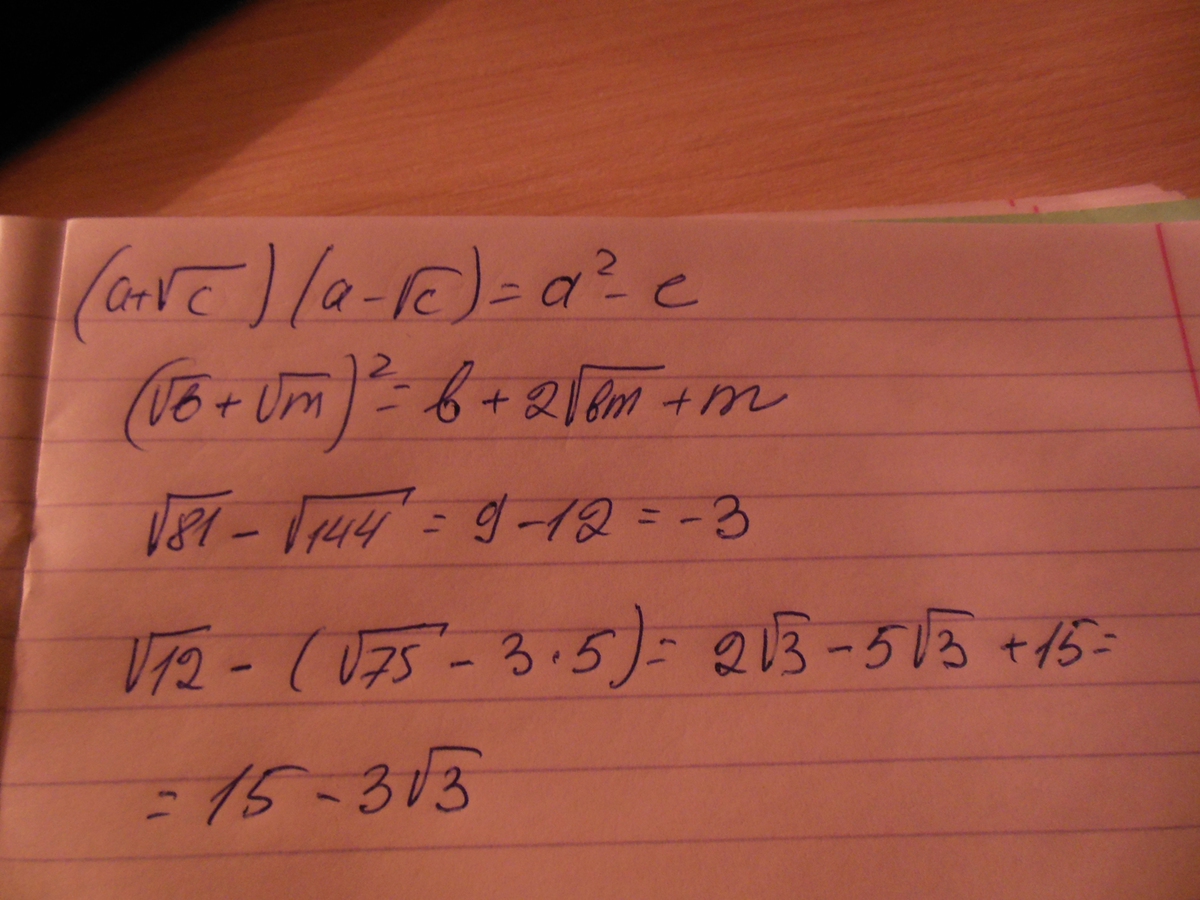 (a+√c)(a-√c)=a²-c
(√b+√m)²=b+2√bm+m
√81-√144=9-12=-3
√12-(√75-3·5)=2√3-5√3+15=
=15-3√3